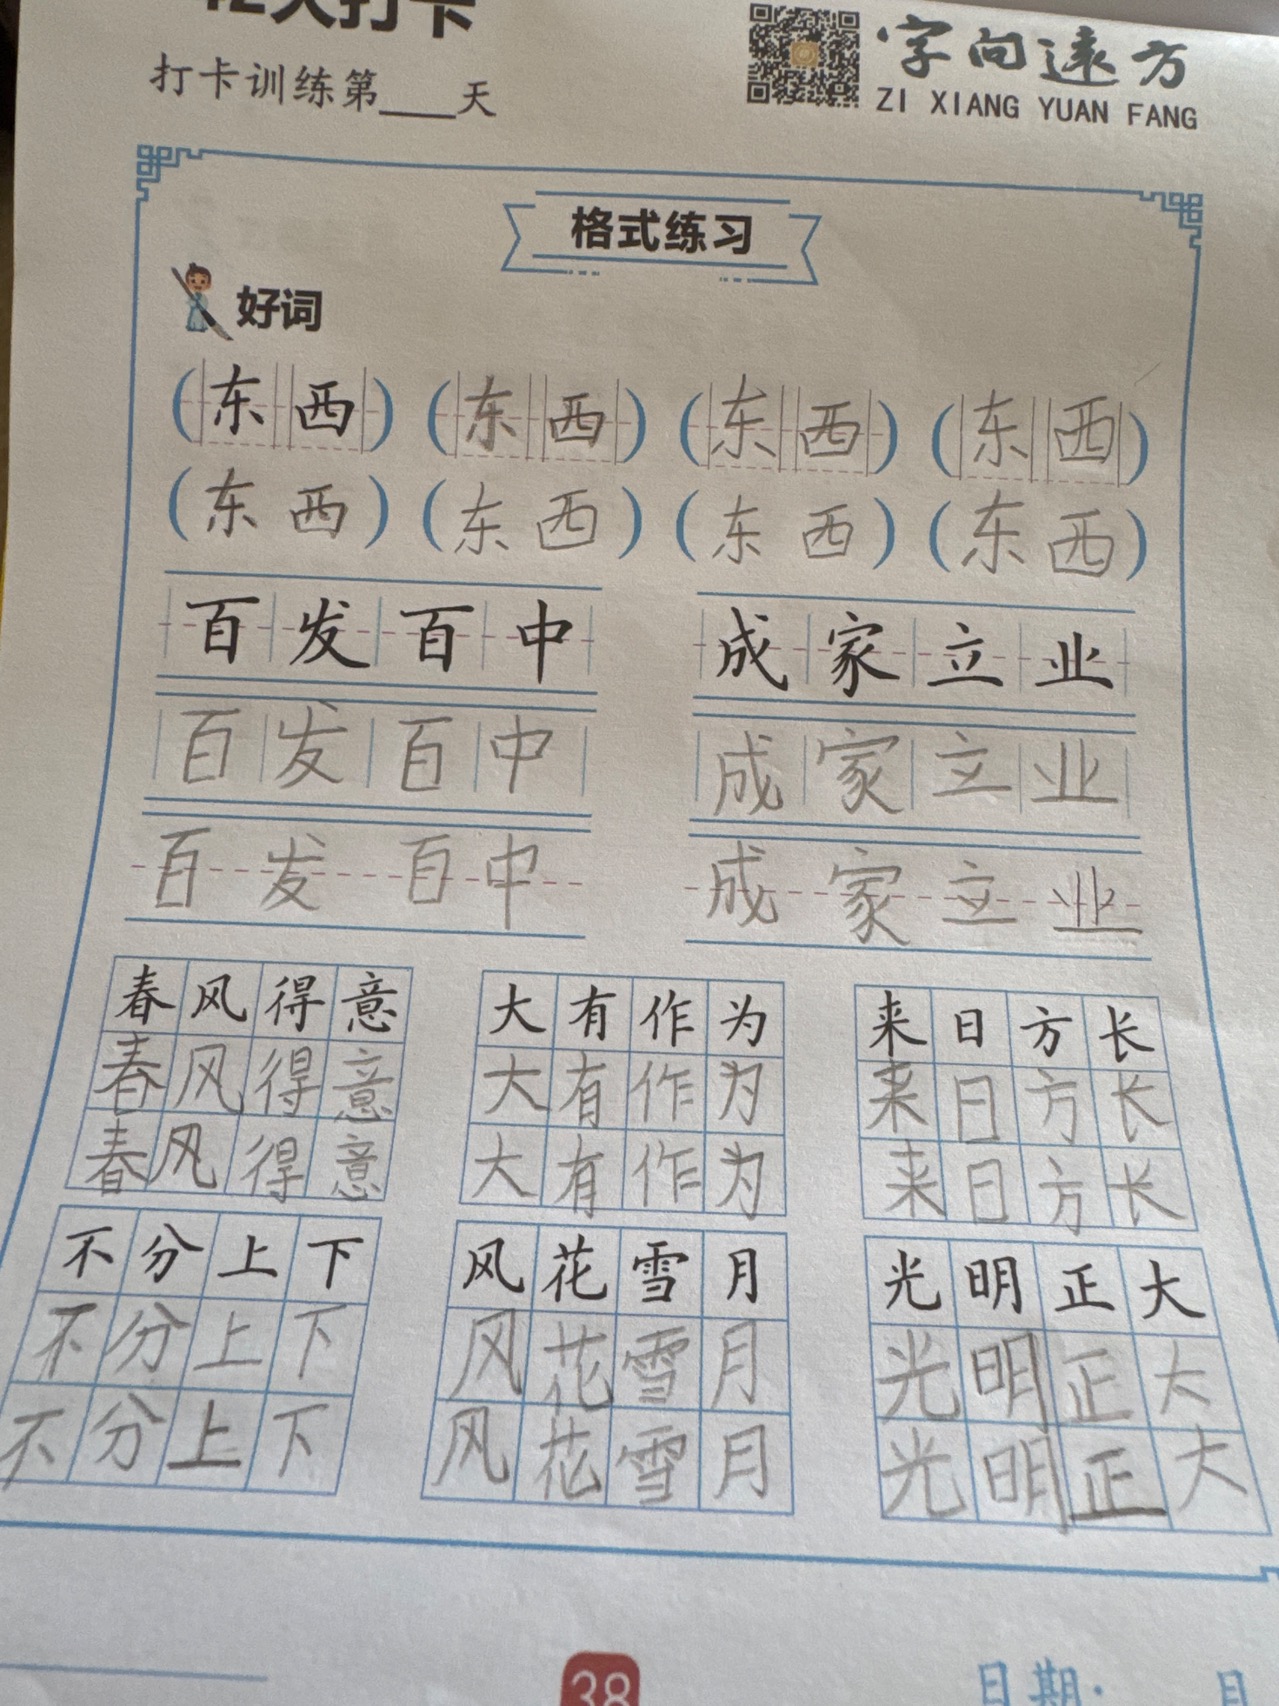 天打卡
字向远方
打卡训练第____天
ZI XIANG YUAN FANG
格式练习
好词
(东西) (东西) (东西) (东西)
(东西) (东西) (东西) (东西)
百发百中 成家立业
百发百中 成家立业
百发百中 成家立业
春风得意 大有作为 来日方长
春风得意 大有作为 来日方长
春风得意 大有作为 来日方长
不分上下 风花雪月 光明正大
不分上下 风花雪月 光明正大
不分上下 风花雪月 光明正大
38
日期: 月